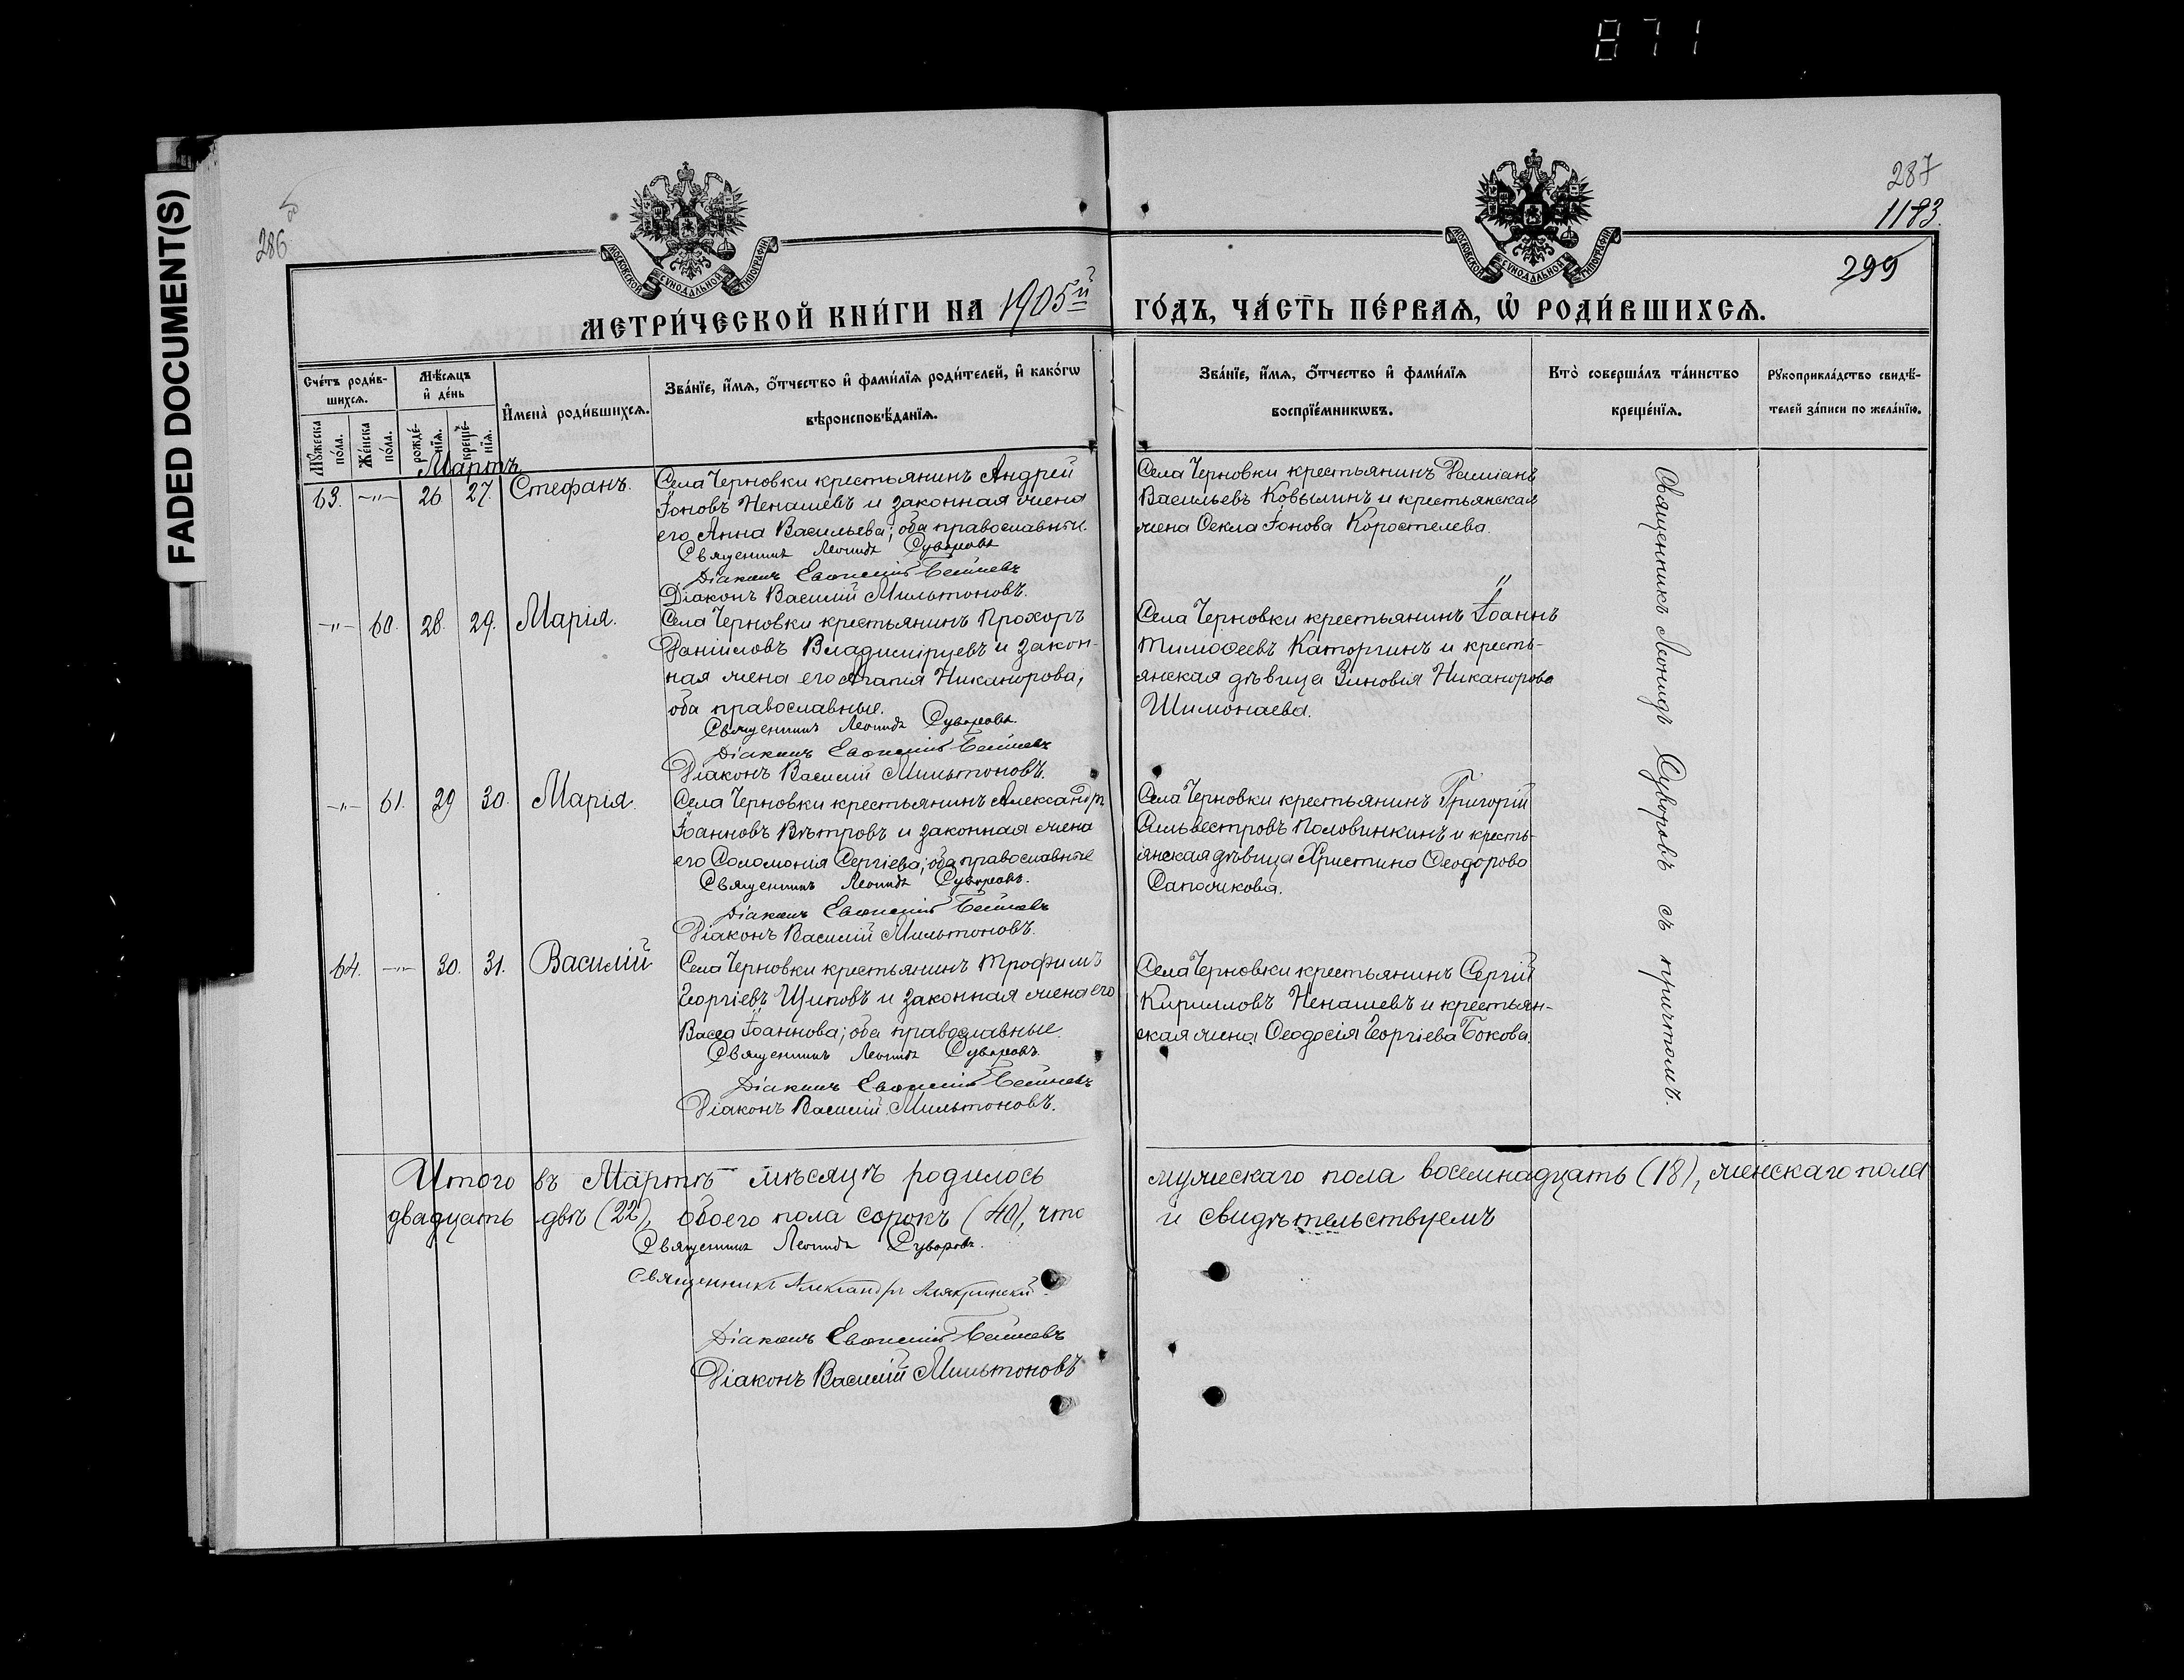 871
FADED DOCUMENT(S)
286 об
287
1183.
299
МОСКОВСКОЙ СѴНОДАЛЬНОЙ ТИПОГРАФІИ
МОСКОВСКОЙ СѴНОДАЛЬНОЙ ТИПОГРАФІИ
МЕТРИ́ЧЕСКОЙ КНИ́ГИ НА 1905й ГО́ДЪ, ЧА́СТЬ ПЕ́РВАѦ, Ѡ҆ РОДИ́ВШИХСѦ.
Сче́тъ роди́в-
шихсѧ.
Мꙋ́жеска
по́ла.
Же́нска
по́ла.
Мѣ́сѧцъ
и҆ де́нь
рожде́-
нїѧ.
креще́-
нїѧ.
И҆мена̀ роди́вшихсѧ.
Зва́нїе, и҆́мѧ, ѻ҆́тчество и҆ фами́лїѧ роди́телей, и҆ како́гѡ
вѣроисповѣ́данїѧ.
Зва́нїе, и҆́мѧ, ѻ҆́тчество и҆ фами́лїѧ
воспрїе́мникѡвъ.
Кто̀ соверша́лъ та́инство
креще́нїѧ.
Рꙋкоприкла́дство свидѣ́-
телей за́писи по жела́нїю.
Мартъ
63. -"- 26 27. Стефанъ.
Села Черновки крестьянинъ Андрей
Іоновъ Ненашевъ и законная жена
его Анна Васильева; оба православные.
Священникъ Леонидъ Суворовъ
Діаконъ Евфимій
Діаконъ Василій Мильтоновъ.
Села Черновки крестьянинъ Даміанъ
Васильевъ Ковылинъ и крестьянская
жена Ѳекла Іонова Коростелева.
-"- 60. 28. 29. Марія.
Села Черновки крестьянинъ Прохоръ
Даніиловъ Владимірцевъ и закон-
ная жена его Агапія Никанорова;
оба православные.
Священникъ Леонидъ Суворовъ.
Діаконъ Евфимій
Діаконъ Василій Мильтоновъ.
Села Черновки крестьянинъ Іоаннъ
Тимоѳеевъ Каторгинъ и кресть-
янская дѣвица Зиновія Никанорова
Шимонаева.
-"- 61. 29 30. Марія.
Села Черновки крестьянинъ Александръ
Іоанновъ Вѣтровъ и законная жена
его Соломонія Сергіева; оба православные
Священникъ Леонидъ Суворовъ.
Діаконъ Евфимій
Діаконъ Василій Мильтоновъ.
Села Черновки крестьянинъ Григорій
Сильвестровъ Половинкинъ и кресть-
янская дѣвица Христина Ѳеодорова
Сапожкова.
64. -"- 30. 31. Василій
Села Черновки крестьянинъ Трофимъ
Георгіевъ Щиповъ и законная жена его
Васса Іоаннова; оба православные.
Священникъ Леонидъ Суворовъ.
Діаконъ Евфимій
Діаконъ Василій Мильтоновъ.
Села Черновки крестьянинъ Сергій
Кирилловъ Ненашевъ и крестьян-
ская жена Ѳеодосія Георгіева Бокова.
Священникъ Леонидъ Суворовъ съ причтомъ.
Итого въ Мартѣ мѣсяцѣ родилось мужескаго пола восемнадцать (18), женскаго пола
двадцать двѣ (22), обоего пола сорокъ (40), что и свидѣтельствуемъ
Священникъ Леонидъ Суворовъ.
Священникъ Александръ
Діаконъ Евфимій
Діаконъ Василій Мильтоновъ